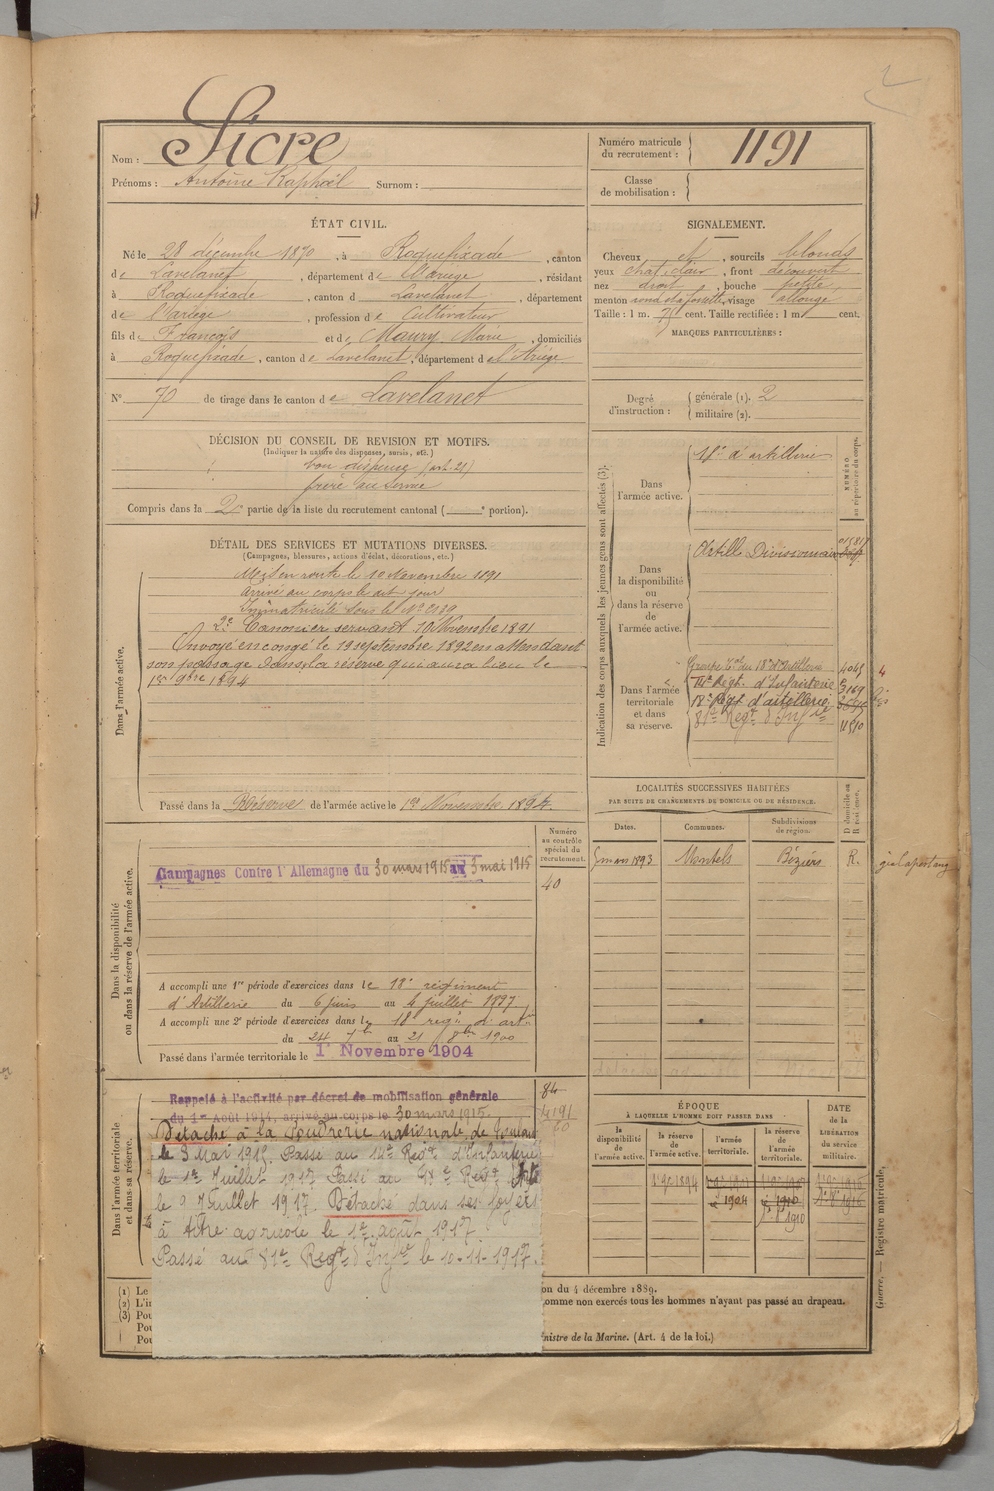 2
Nom : Sicre
Prénoms : Antoine Raphaël Surnom :
Numéro matricule du recrutement : 1191
Classe de mobilisation :
ÉTAT CIVIL.
Né le 28 décembre 1870, à Roquefixade, canton
de Lavelanet, département de l'Ariège, résidant
à Roquefixade, canton de Lavelanet, département
de l'Ariège, profession de Cultivateur
fils de François et de Maury Marie, domiciliés
à Roquefixade, canton de Lavelanet, département de l'Ariège
N° 70 de tirage dans le canton de Lavelanet
SIGNALEMENT.
Cheveux et, sourcils blonds
yeux chat. clair, front découvert
nez droit, bouche petite
menton rond et à fossette, visage allongé
Taille : 1 m. 75 cent. Taille rectifiée : 1 m. cent.
MARQUES PARTICULIÈRES :
Degré d'instruction : générale (1). 2
militaire (2).
DÉCISION DU CONSEIL DE REVISION ET MOTIFS.
(Indiquer la nature des dispenses, sursis, etc.)
bon dispensé (art. 21)
frère au service
Compris dans la 2e partie de la liste du recrutement cantonal ( e portion).
DÉTAIL DES SERVICES ET MUTATIONS DIVERSES.
(Campagnes, blessures, actions d'éclat, décorations, etc.)
Dans l'armée active.
Mis en route le 10 Novembre 1891
arrivé au corps le dit jour
Immatriculé sous le N° 2139
2e Canonier servant 10 Novembre 1891
Envoyé en congé le 19 septembre 1892 en attendant
son passage dans la réserve qui aura lieu le
1er 9bre 1894
Passé dans la Réserve de l'armée active le 1er Novembre 1894.
Indication des corps auxquels les jeunes gens sont affectés (3).
NUMÉRO au répertoire du corps.
Dans l'armée active.
d'artillerie
Dans la disponibilité ou dans la réserve de l'armée active.
Artille Divisionnaire
Dans l'armée territoriale et dans sa réserve.
Groupe Tal du 18e d'Artillerie 4045
14e Régt. d'Infanterie 3169
18e Régt d'artillerie
81e Regt d'Infie 11510
4
bis
Dans la disponibilité ou dans la réserve de l'armée active.
Numéro au contrôle spécial du recrutement.
Campagnes Contre l'Allemagne du 30 mars 1915 au 3 mai 1915
40
A accompli une 1re période d'exercices dans le 18e régiment
d'Artillerie du 6 juin au 4 juillet 1897
A accompli une 2e période d'exercices dans le 18 regt d'artie
du 24 7bre au 21 8bre 1900
Passé dans l'armée territoriale le 1er Novembre 1904
LOCALITÉS SUCCESSIVES HABITÉES
PAR SUITE DE CHANGEMENTS DE DOMICILE OU DE RÉSIDENCE.
Dates. Communes. Subdivisions de région. D domicile ou R résidence.
5 mars 1893 Montels Béziers R.
Dans l'armée territoriale et dans sa réserve.
Rappelé à l'activité par décret de mobilisation générale
du 1er Août 1914, arrivé au corps le 30 mars 1915.
Détaché à la Poudrerie nationale de Toulouse
le 3 Mai 1915. Passé au 14e Regt d'Infanterie
le 1er Juillet 1917 Passé au 18e Regt Artie
le 9 Juillet 1917. Détaché dans ses foyers
à titre agricole le 1er août 1917
Passé au 81e Regt d'Infie le 10-11-1917.
84
4191
60
ÉPOQUE
À LAQUELLE L'HOMME DOIT PASSER DANS
la disponibilité de l'armée active. la réserve de l'armée active. l'armée territoriale. la réserve de l'armée territoriale.
DATE de la LIBÉRATION du service militaire.
1er 9bre 1894
1904
1910
1916
(1) Le
(2) L'in
(3) Pou
Pou
Pou
on du 4 décembre 1889.
omme non exercés tous les hommes n'ayant pas passé au drapeau.
nistre de la Marine. (Art. 4 de la loi.)
Guerre. — Registre matricule.